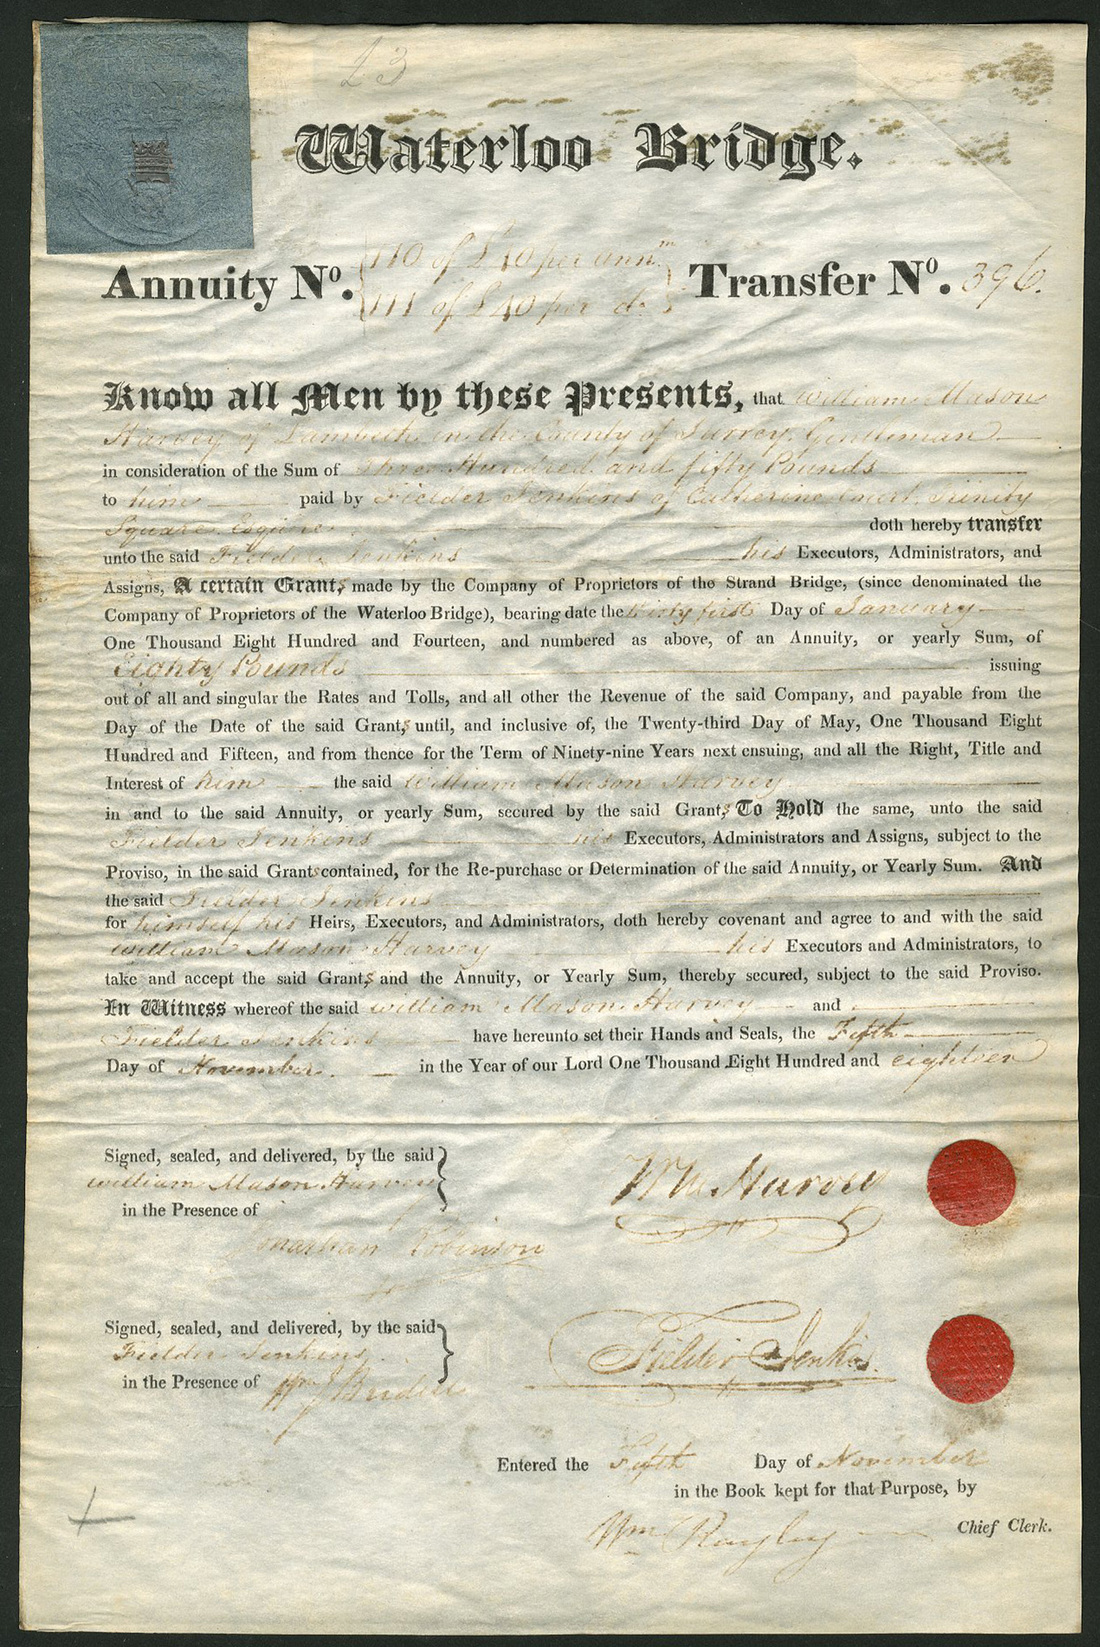 £3
THREE
POUNDS
Waterloo Bridge.
Annuity No. {110 of £40 per annm
111 of £40 per do} Transfer No. 396.
Know all Men by these Presents, that William Mason
Harvey of Lambeth in the County of Surrey, Gentleman
in consideration of the Sum of Three Hundred and fifty Pounds
to him paid by Fielder Jenkins of Catherine Court Trinity
Square Esquire doth hereby transfer
unto the said Fielder Jenkins his Executors, Administrators, and
Assigns, A certain Grants made by the Company of Proprietors of the Strand Bridge, (since denominated the
Company of Proprietors of the Waterloo Bridge), bearing date the thirty first Day of January
One Thousand Eight Hundred and Fourteen, and numbered as above, of an Annuity, or yearly Sum, of
Eighty Pounds issuing
out of all and singular the Rates and Tolls, and all other the Revenue of the said Company, and payable from the
Day of the Date of the said Grants, until, and inclusive of, the Twenty-third Day of May, One Thousand Eight
Hundred and Fifteen, and from thence for the Term of Ninety-nine Years next ensuing, and all the Right, Title and
Interest of him the said William Mason Harvey
in and to the said Annuity, or yearly Sum, secured by the said Grants, To Hold the same, unto the said
Fielder Jenkins his Executors, Administrators and Assigns, subject to the
Proviso, in the said Grants contained, for the Re-purchase or Determination of the said Annuity, or Yearly Sum. And
the said Fielder Jenkins
for himself his Heirs, Executors, and Administrators, doth hereby covenant and agree to and with the said
William Mason Harvey his Executors and Administrators, to
take and accept the said Grants and the Annuity, or Yearly Sum, thereby secured, subject to the said Proviso.
In Witness whereof the said William Mason Harvey and
Fielder Jenkins have hereunto set their Hands and Seals, the Fifth
Day of November in the Year of our Lord One Thousand Eight Hundred and eighteen
Signed, sealed, and delivered, by the said
William Mason Harvey
in the Presence of
Jonathan Robinson
Wm. Harvey
Signed, sealed, and delivered, by the said
Fielder Jenkins
in the Presence of Wm
Fielder Jenkins.
Entered the Fifth Day of November
in the Book kept for that Purpose, by
Wm Rayley Chief Clerk.